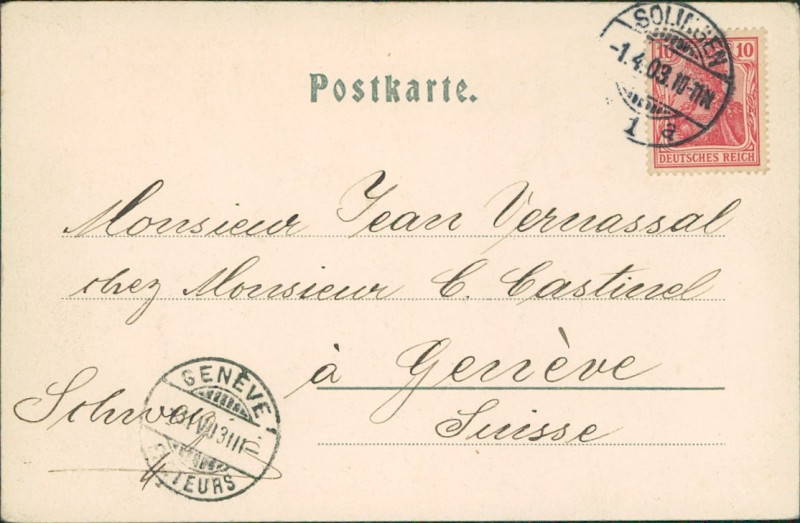 SOLINGEN
-1.4.03.10-11N
1 a
10 10
DEUTSCHES REICH
Postkarte.
Monsieur Jean Vernassal
chez Monsieur C. Castinel
à Genève
Suisse
Schweiz
GENÈVE
FACTEURS